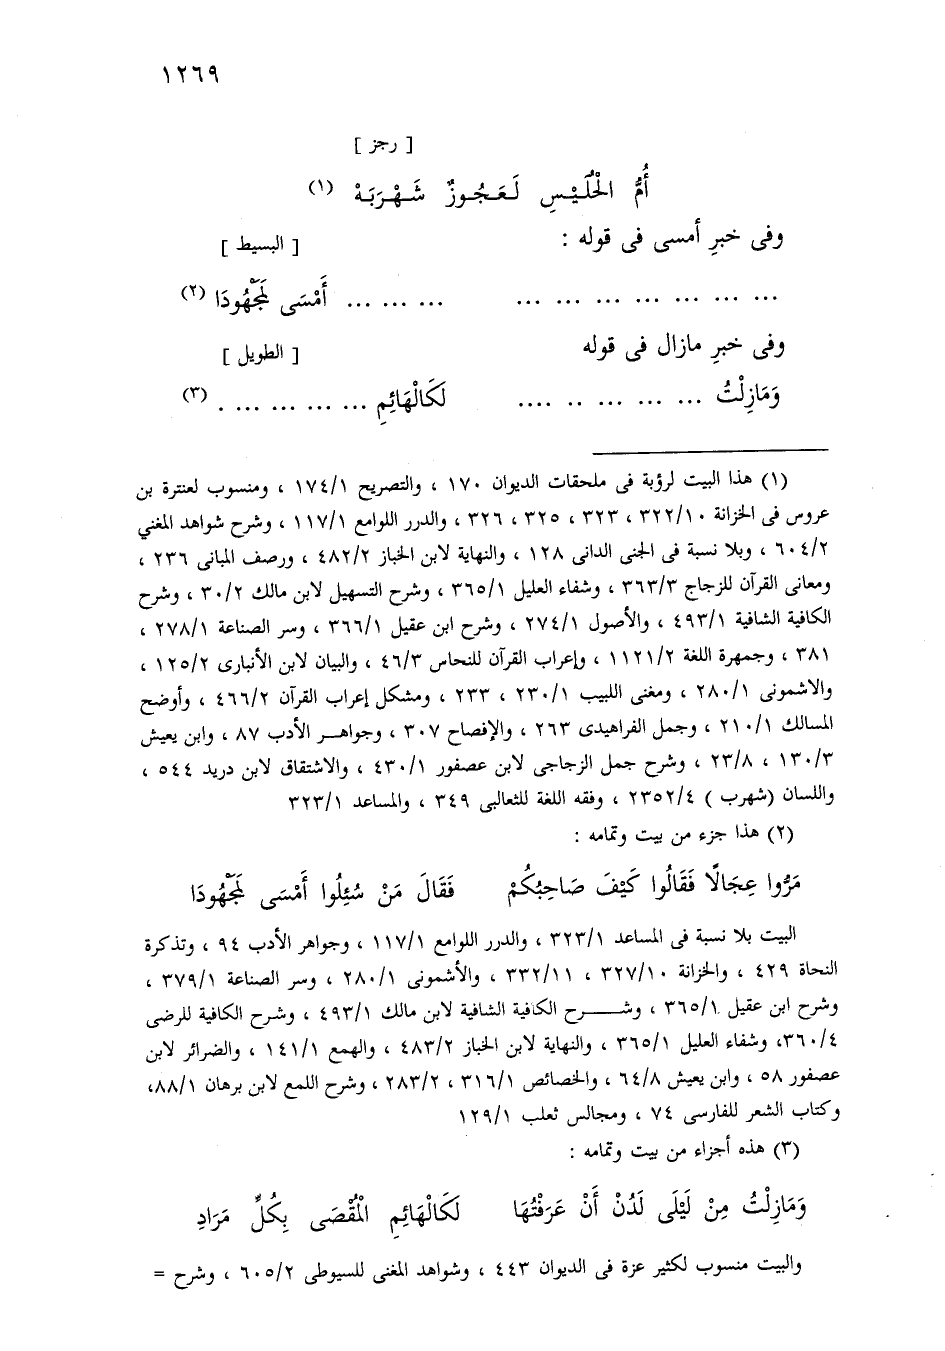 ١٢٦٩
[ رجز ]
أُمُّ الْحُلَيْسِ لَعَجُوزٌ شَهْرَبَهْ (١)
وفى خبرِ أمسى فى قوله : [ البسيط ]
... ... ... ... ... ... ... ... ... ... أَمْسَى لَمَجْهُودَا (٢)
وفى خبرِ مازال فى قوله [ الطويل ]
وَمَازِلْتُ ... ... ... .. .... لَكَالْهَائِمِ ... ... ... ... . (٣)
(١) هذا البيت لرؤبة فى ملحقات الديوان ١٧٠ ، والتصريح ١٧٤/١ ، ومنسوب لعنترة بن
عروس فى الخزانة ٣٢٢/١٠ ، ٣٢٣ ، ٣٢٥ ، ٣٢٦ ، والدرر اللوامع ١١٧/١ ، وشرح شواهد المغني
٦٠٤/٢ ، وبلا نسبة فى الجنى الدانى ١٢٨ ، والنهاية لابن الخباز ٤٨٢/٢ ، ورصف المبانى ٢٣٦ ،
ومعانى القرآن للزجاج ٣٦٣/٣ ، وشفاء العليل ٣٦٥/١ ، وشرح التسهيل لابن مالك ٣٠/٢ ، وشرح
الكافية الشافية ٤٩٣/١ ، والأصول ٢٧٤/١ ، وشرح ابن عقيل ٣٦٦/١ ، وسر الصناعة ٢٧٨/١ ،
٣٨١ ، وجمهرة اللغة ١١٢١/٢ ، وإعراب القرآن للنحاس ٤٦/٣ ، والبيان لابن الأنبارى ١٢٥/٢ ،
والاشمونى ٢٨٠/١ ، ومغنى اللبيب ٢٣٠/١ ، ٢٣٣ ، ومشكل إعراب القرآن ٤٦٦/٢ ، وأوضح
المسالك ٢١٠/١ ، وجمل الفراهيدى ٢٦٣ ، والإفصاح ٣٠٧ ، وجواهــر الأدب ٨٧ ، وابن يعيش
١٣٠/٣ ، ٢٣/٨ ، وشرح جمل الزجاجى لابن عصفور ٤٣٠/١ ، والاشتقاق لابن دريد ٥٤٤ ،
واللسان (شهرب ) ٢٣٥٢/٤ ، وفقه اللغة للثعالبى ٣٤٩ ، والمساعد ٣٢٣/١
(٢) هذا جزء من بيت وتمامه :
مَرُّوا عِجَالًا فَقَالُوا كَيْفَ صَاحِبُكُمْ فَقَالَ مَنْ سُئِلُوا أَمْسَى لَمَجْهُودَا
البيت بلا نسبة فى المساعد ٣٢٣/١ ، والدرر اللوامع ١١٧/١ ، وجواهر الأدب ٩٤ ، وتذكرة
النحاة ٤٢٩ ، والخزانة ٣٢٧/١٠ ، ٣٣٢/١١ ، والأشمونى ٢٨٠/١ ، وسر الصناعة ٣٧٩/١ ،
وشرح ابن عقيل ٣٦٥/١ ، وشـــــرح الكافية الشافية لابن مالك ٤٩٣/١ ، وشرح الكافية للرضى
٣٦٠/٤، وشفاء العليل ٣٦٥/١ ، والنهاية لابن الخباز ٤٨٣/٢ ، والهمع ١٤١/١ ، والضرائر لابن
عصفور ٥٨ ، وابن يعيش ٦٤/٨ ، والخصائص ٣١٦/١ ، ٢٨٣/٢ ، وشرح اللمع لابن برهان ٨٨/١،
وكتاب الشعر للفارسى ٧٤ ، ومجالس ثعلب ١٢٩/١
(٣) هذه أجزاء من بيت وتمامه :
وَمَازِلْتُ مِنْ لَيْلَى لَدُنْ أَنْ عَرَفْتُهَا لَكَالْهَائِمِ الْمُقْصَى بِكُلِّ مَرَادِ
والبيت منسوب لكثير عزة فى الديوان ٤٤٣ ، وشواهد المغنى للسيوطى ٦٠٥/٢ ، وشرح =